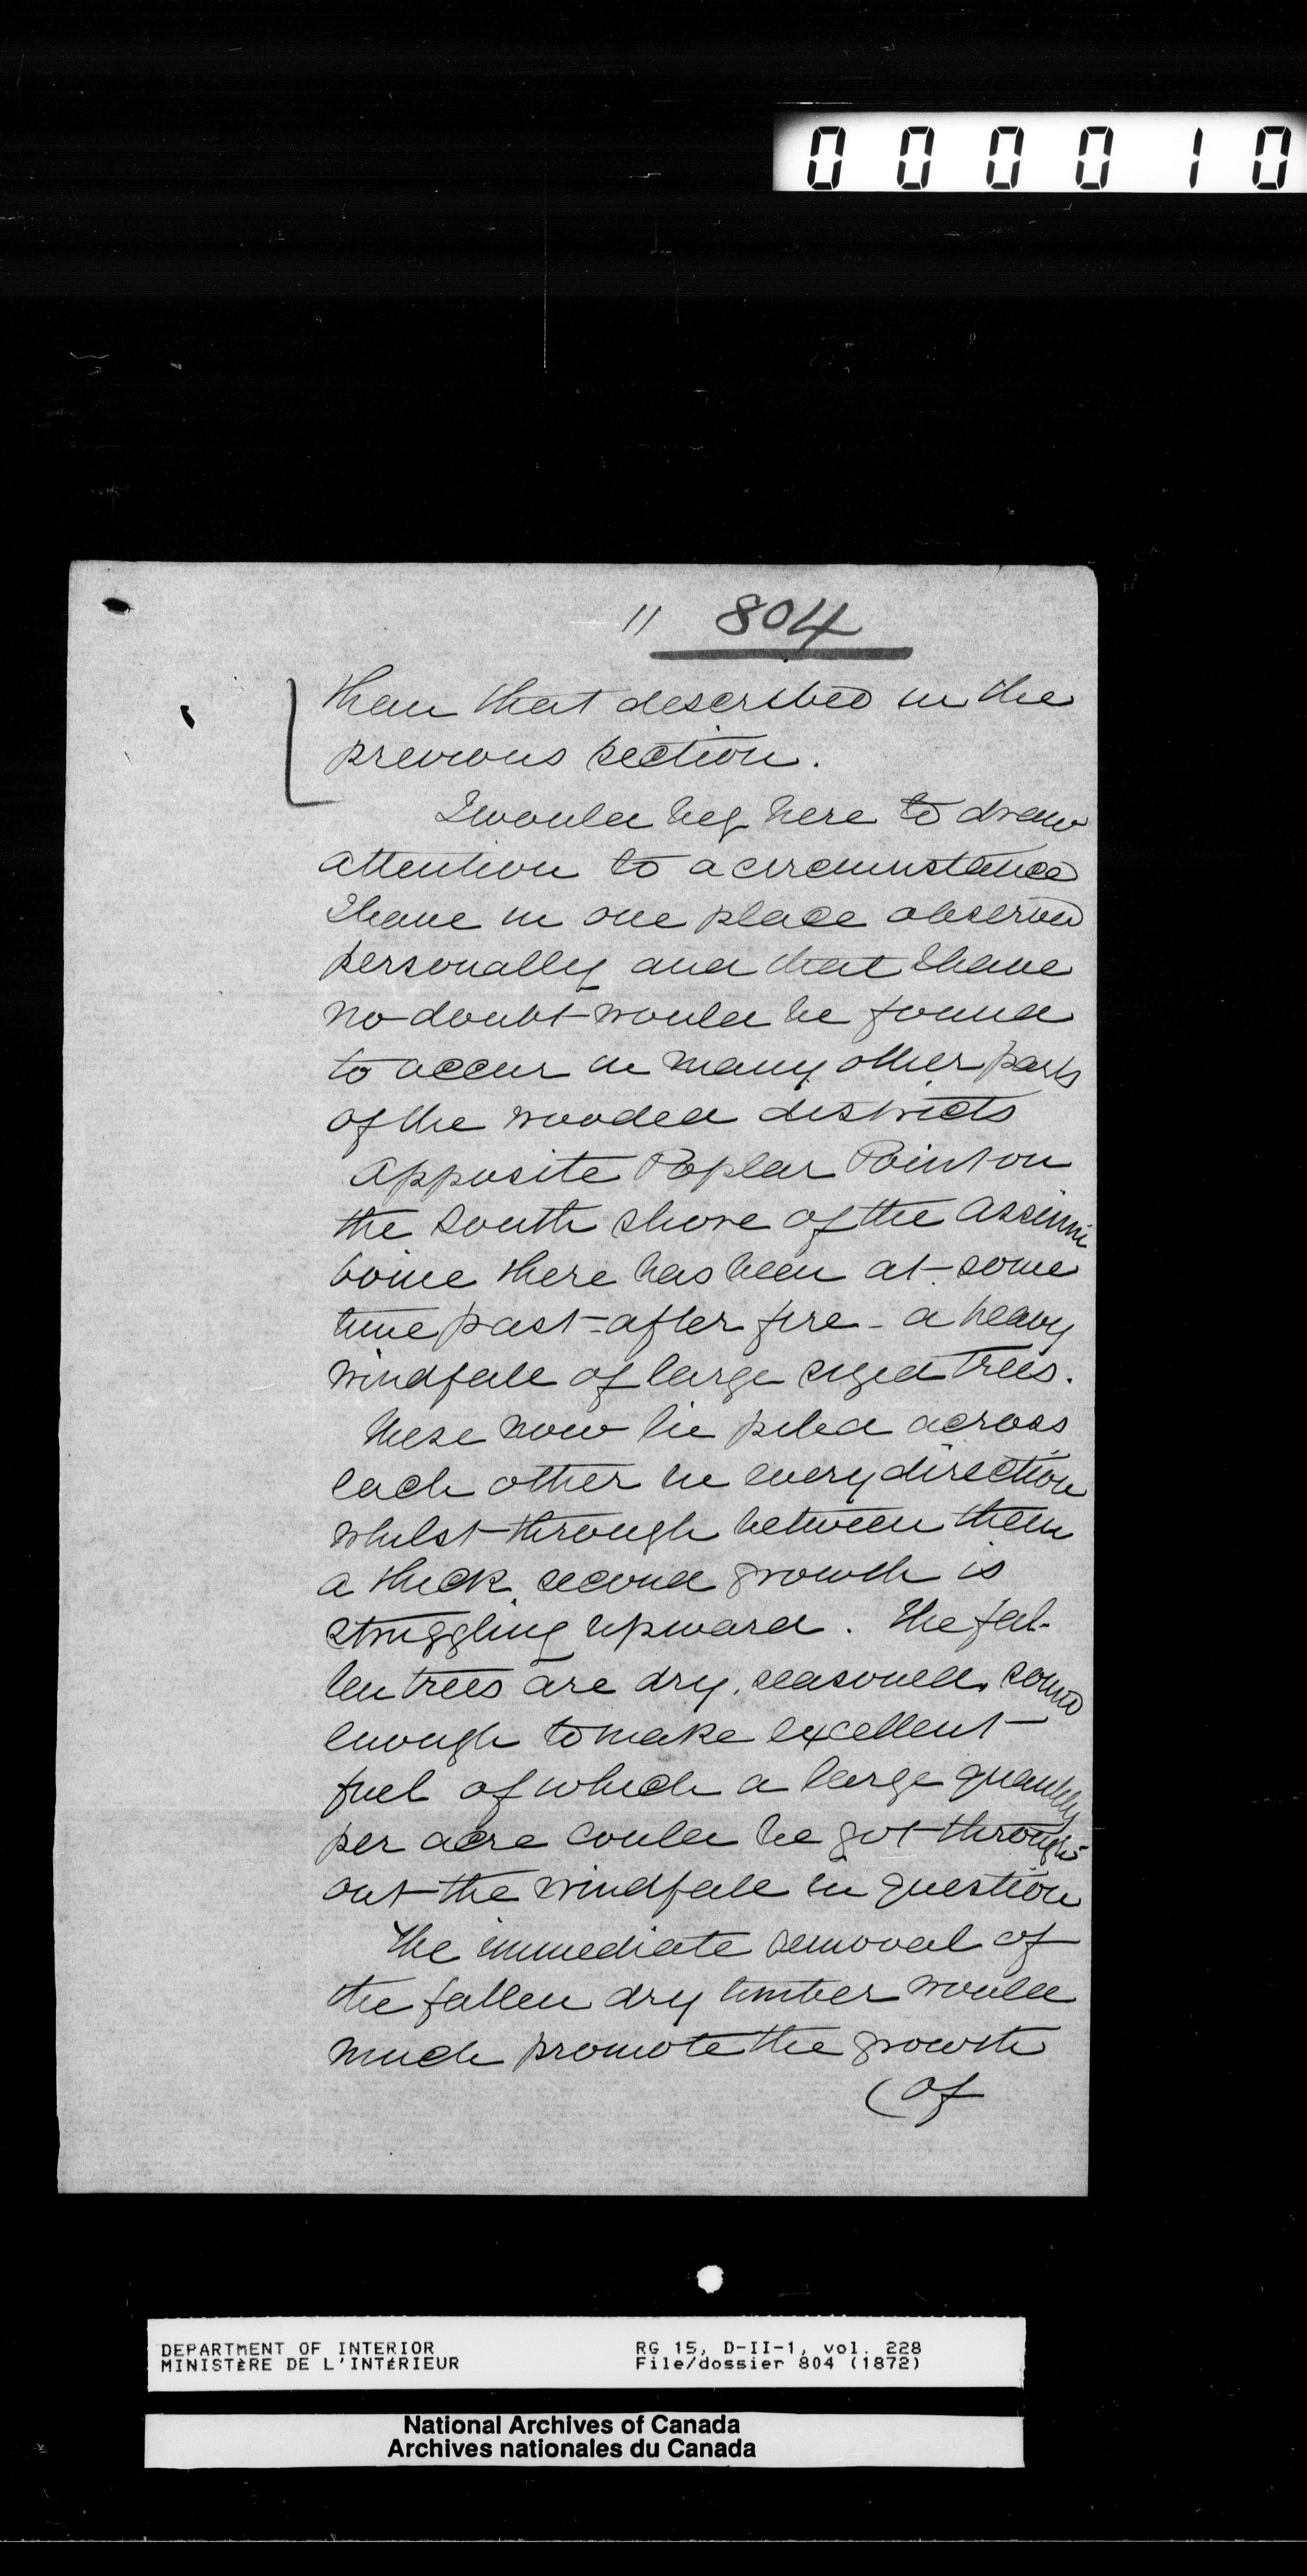 000010
11 804
than that described in the
previous section.
I would beg here to draw
attention to a circumstance
I have in one place observed
personally and that I have
no doubt would be found
to occur in many other parts
of the wooded districts
Opposite Poplar Point on
the South shore of the Assini
boine there has been at some
time past - after fire - a heavy
windfall of large sized trees.
These now lie piled across
each other in every direction
whilst through between them
a thick second growth is
struggling upward. The fal-
len trees are dry, seasoned, sound
enough to make excellent
fuel of which a large quantity
per acre could be got through-
out the windfall in question
The immediate removal of
the fallen dry timber would
much promote the growth
(of
DEPARTMENT OF INTERIOR RG 15, D-II-1, vol. 228
MINISTÈRE DE L'INTÉRIEUR File/dossier 804 (1872)
National Archives of Canada
Archives nationales du Canada